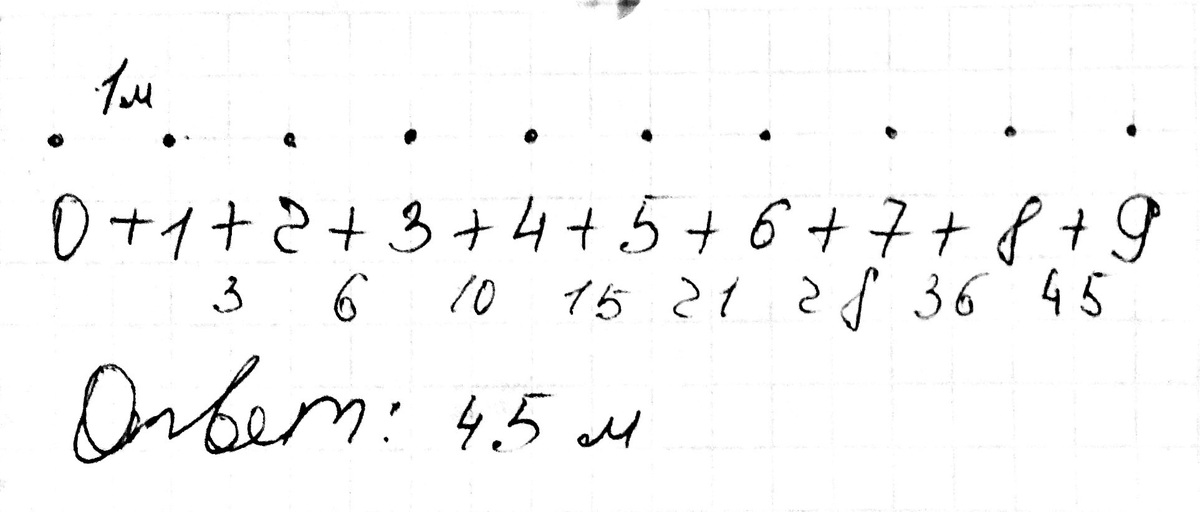 1м
0+1+2+3+4+5+6+7+8+9
3 6 10 15 21 28 36 45
Ответ: 45 м